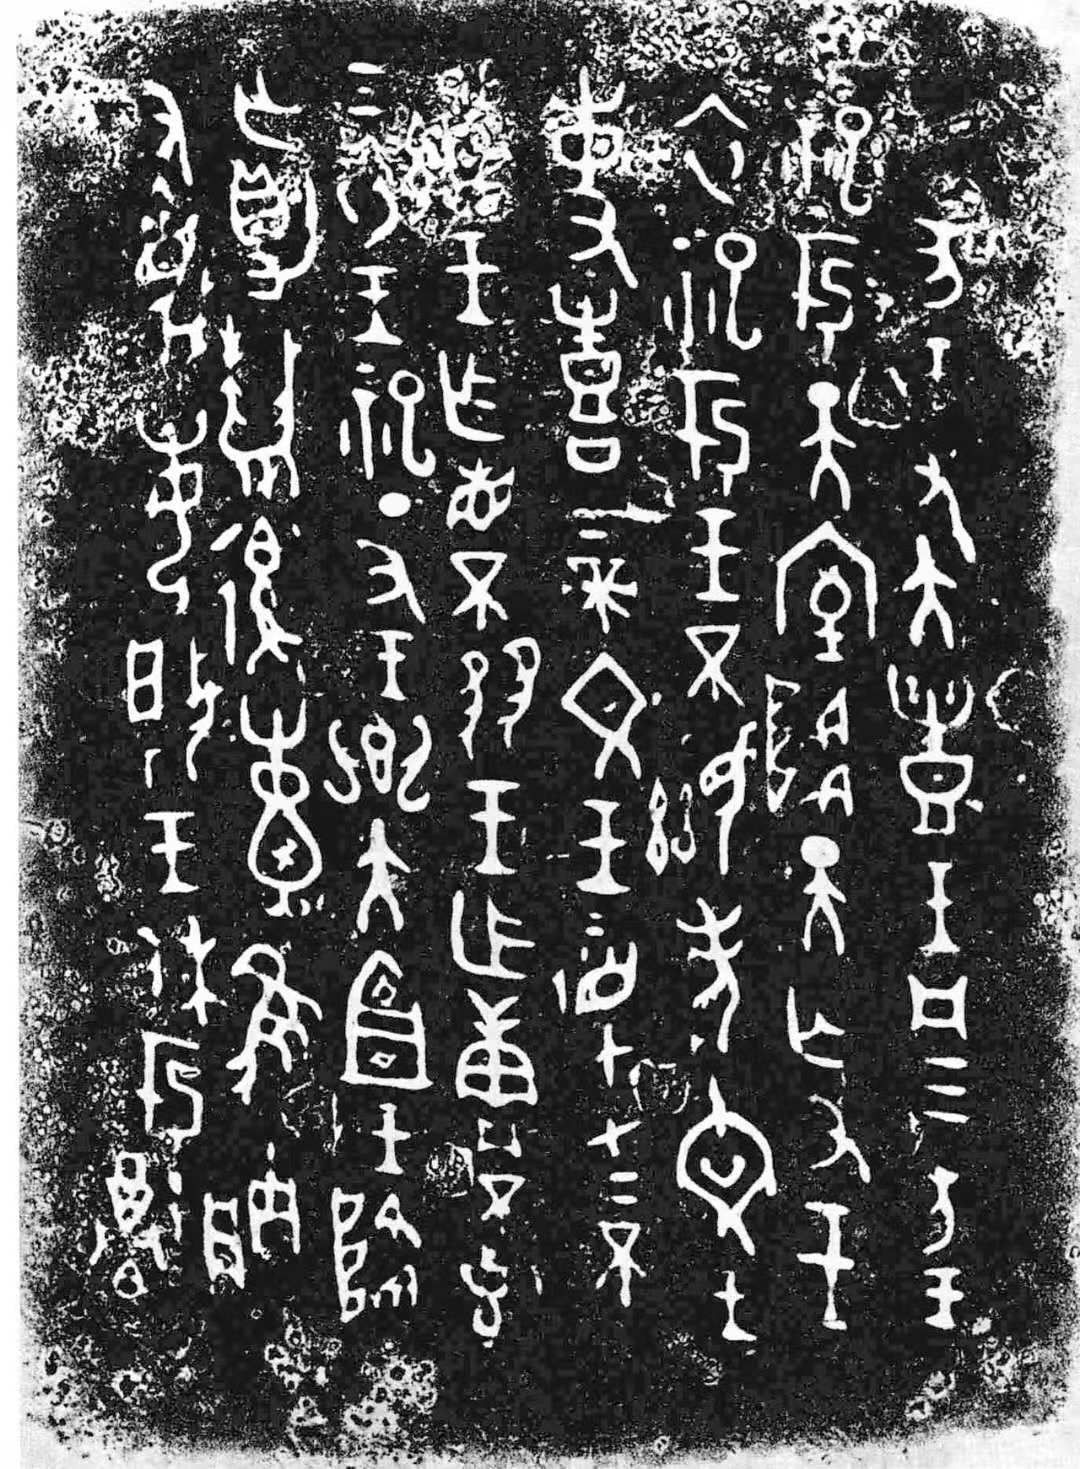 王又大豊王凡三方王
祀于天室降天亡又王
衣祀于王不顯考文王
事喜上帝文王監在上不
顯王乍省不王乍庸不克
乞衣王祀丁丑王鄉大宜王降
亡爵復隹朕
又蔑每揚王休于尊